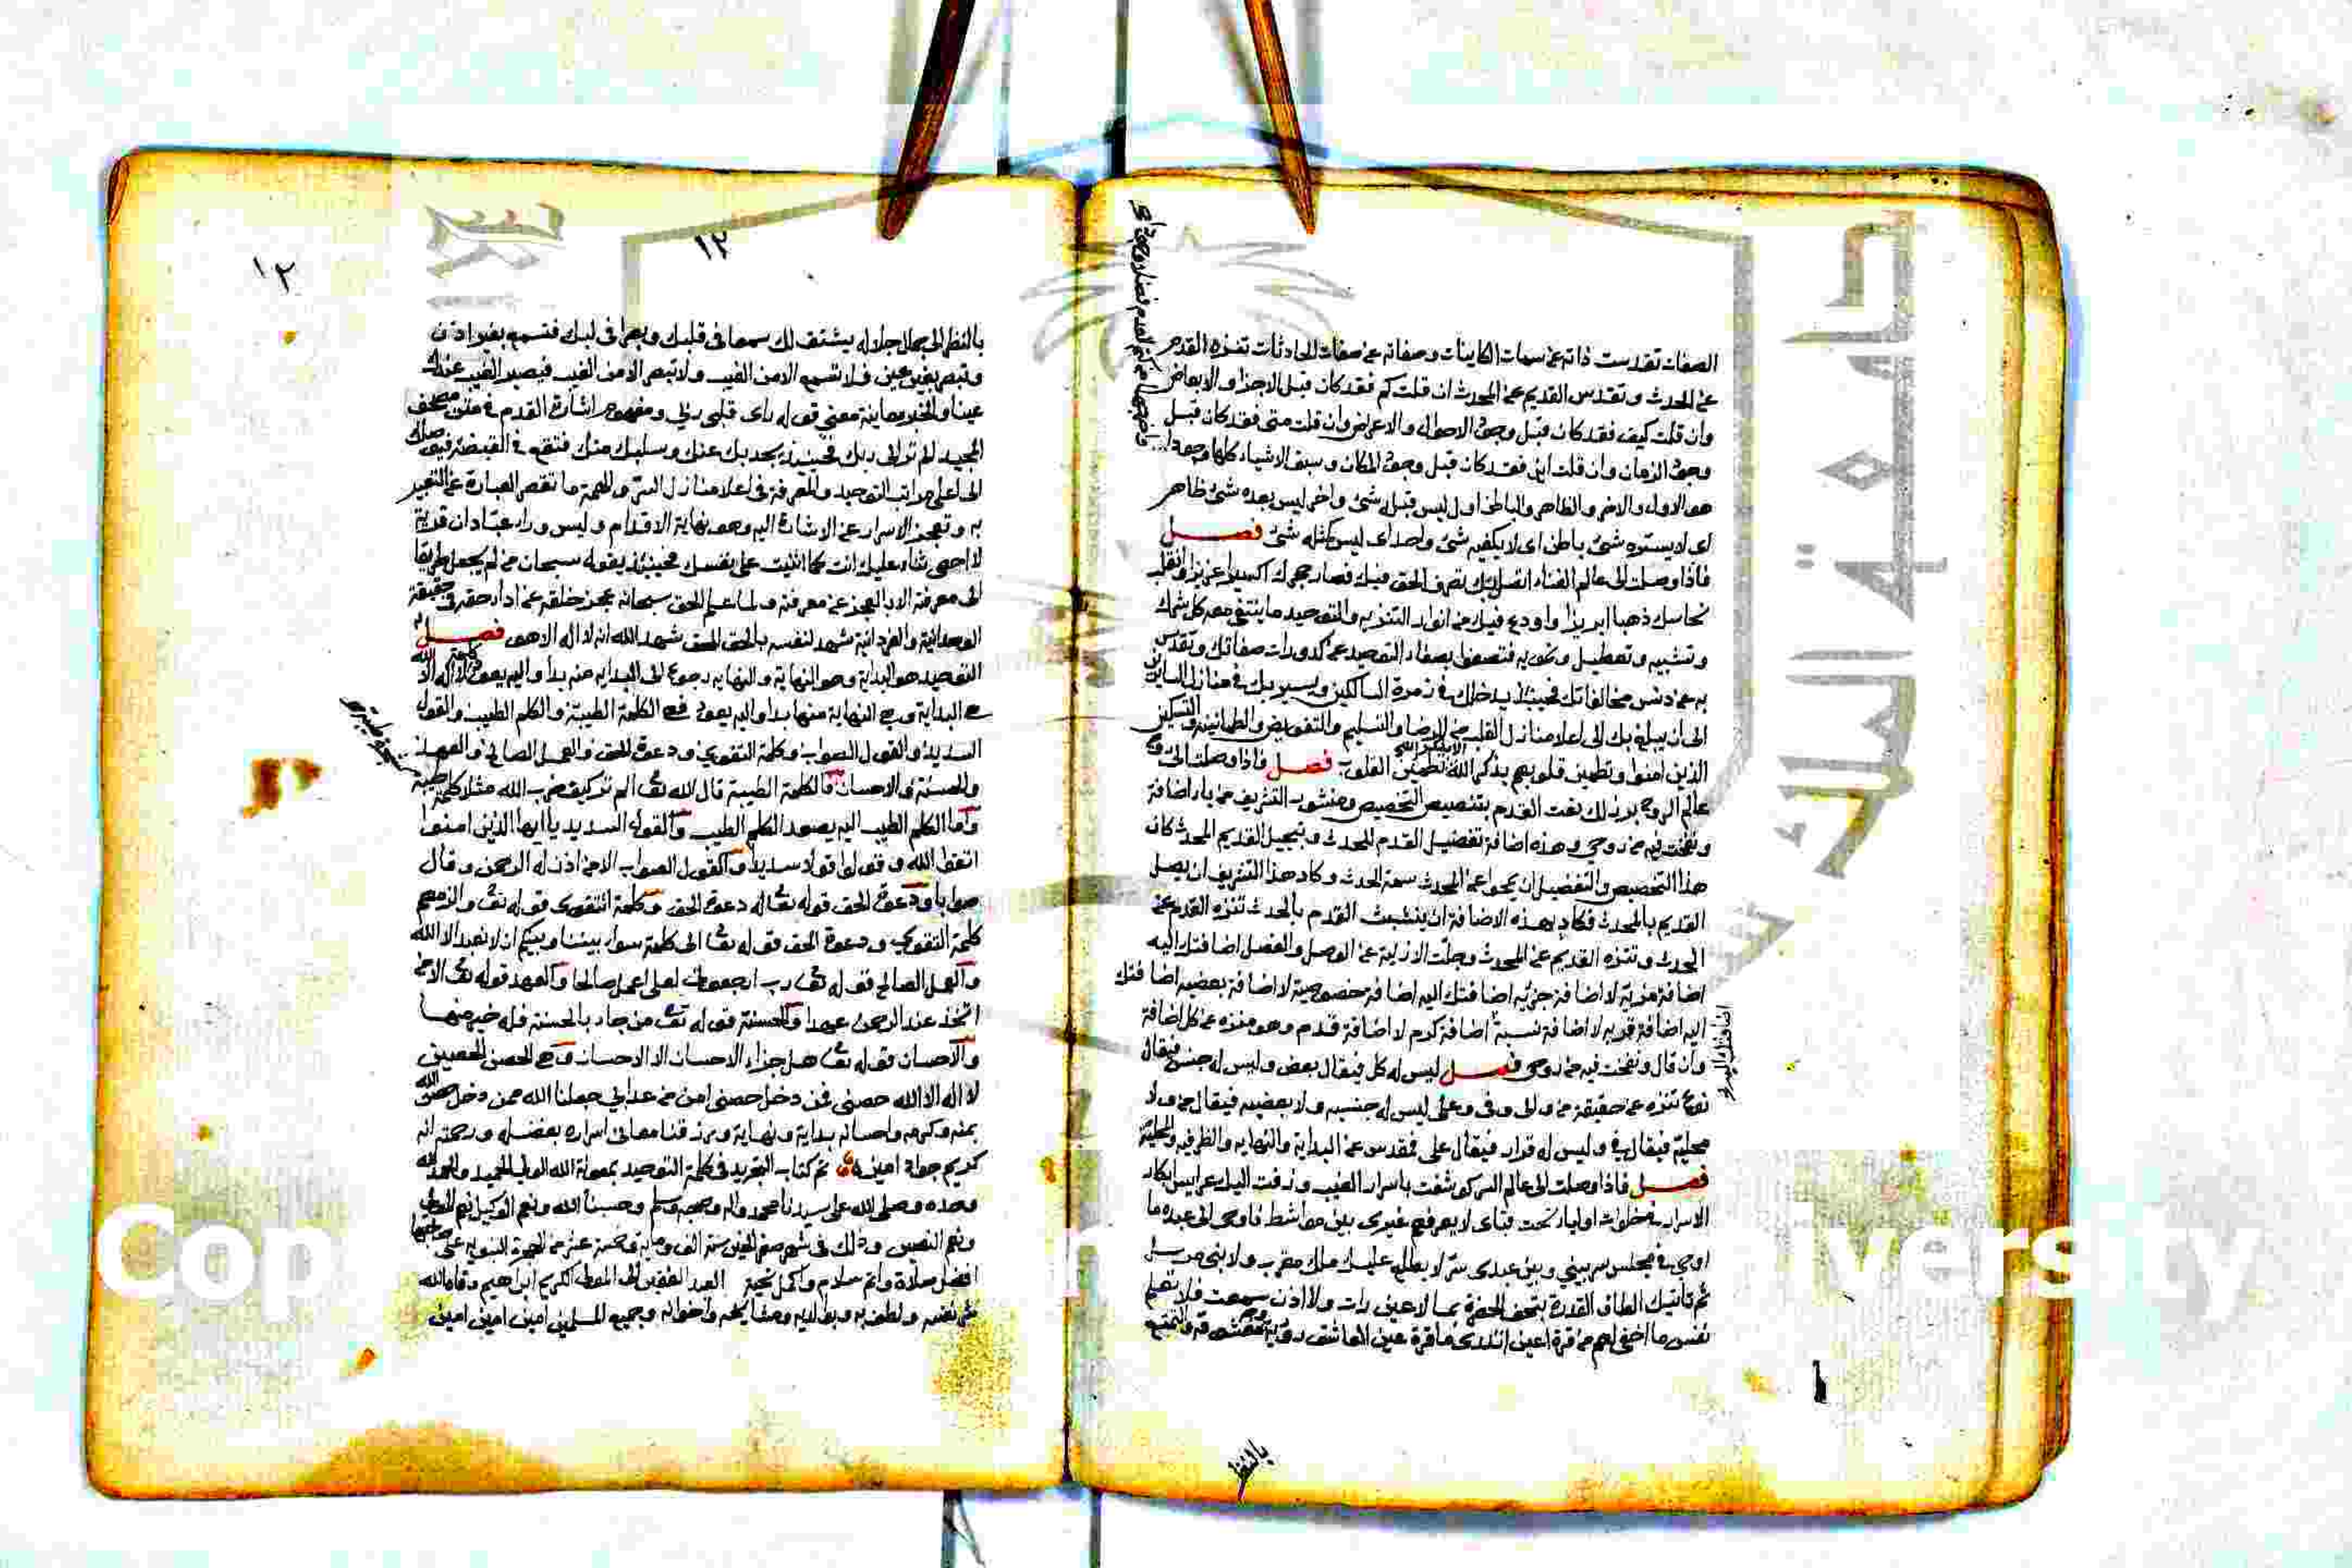 الصفات تقدست ذاته عن سمات الكاينات وصفاته عن صفات الحادثات تنزه القدم
عن الحدث وتقدس القديم عن المحدث ان قلت كم فقد كان قبل الاجزا والابعاض
وان قلت كيف فقد كان قبل وجود الاحوال والاعراض وان قلت متى فقد كان قبل
وجود الزمان وان قلت اين فقد كان قبل وجود المكان وسبق الاشياء كلها وجودا
هو الاول والاخر والظاهر والباطن اول ليس قبله شئ واخر ليس بعده شئ ظاهر
اى لا يستره شئ باطن اى لا يكفيه شئ واحد اى ليس كمثله شئ فصل
فاذا وصلت الى عالم الفناء اتصل بك تصرف الحق فيك فصار حجرك اكسيرا عزيزا وانقلب
نحاسك ذهبا ابريزا واودع فيك من انوار التنزيه والتوحيد ما ينتفى معه كل شرك
وتشبيه وتعطيل وتمويه فتصفوا بصفاء التوحيد عن كدورات صفاتك وتقدس
به عن دنس مخالفاتك فحينئذ يدخلك فى زمرة السالكين ويسير بك فى منازل السايرين
الى ان يبلغ بك الى اعلا منازل القلب من الرضا والتسليم والتفويض والطمانينة والتسكين
الذين امنوا وتطمئن قلوبهم بذكر الله الا بذكر الله تطمئن القلوب فصل فاذا وصلت الى
عالم الروح برز لك نعت القدم بتنصيص التخصيص ومنشور التشريف من ياء اضافة
ونفخت فيه من روحي وهذه اضافة تفضيل القدم للحدث وتبجيل القديم المحدث كان
هذا التخصيص والتفضيل ان يمحوا عن المحدث سمة الحدث وكاد هذا التشريف ان يصل
القديم بالمحدث فكاد بهذه الاضافة ان يتشبث القدم بالحدث تنزه القدم عن
الحدث وتنزه القديم عن المحدث وجلت الازلية عن الوصل والفصل اضافتك اليه
اضافة مزية لا اضافة جزئيه اضافتك اليه اضافة خصوصية لا اضافة بعضيه اضافتك
اليه اضافة قربه لا اضافة نسبة اضافة كرم لا اضافة قدم وهو منزه عن كل اضافة
وان قال ونفخت فيه من روحى فصل ليس له كل فيقال بعض وليس له جنس فيقال
نوع تنزه عن حقيقة من والى وفى وعلى ليس له جنسيه ولا بعضيه فيقال من ولا
محلية فيقال فى وليس له قرار فيقال على فقدس عن البداية والنهايه والظرفيه والمحلية
فصل فاذا وصلت الى عالم السر كوشفت باسرار الغيب وزفت اليك عرايس ابكار
الاسرار فى خلوات اوليائى تحت قبابى لا يعرفهم غيرى بين مواشط فاوحى الى عبده ما
اوحى فى مجلس سر بينى وبين عبدى سر لا يطلع عليك ملك مقرب ولا نبى مرسل
ثم تاتيك الطاف القدرة بتحف الحضرة بما لا عين رات ولا اذن سمعت فلا تعلم
نفس ما اخفى لهم من قرة اعين اتدرى ما قرة عين العاشق رؤية معشوقه والتمتع
اضافتك اليه
بالنظر
١٢
١٢
بالنظر الى جمال جلاله يشتق لك سمعا فى قلبك وبصرا فى لبك فتسمع بغير اذن
وتبصر بغير عين فلا تسمع الا من الغيب ولا تبصر الا من الغيب فيصير الغيب عندك
عينا والخبر معاينة معنى قوله راى قلبى ربى ومفهوم اشارة القدم فى متن مصحف
المجيد الم تر الى ربك فحينئذ يجذبك عنك وسلبك منك فتقع فى القبضة فيوصلك
الى اعلى مراتب التوحيد والمعرفة فى اعلا منازل السر والهمة ما تقصر العبارة عن التعبير
به وتعجز الاسرار عن الاشارة اليه وهو نهاية الاقدام وليس وراء عبادان قرية
لا احصى ثناء عليك انت كما اثنيت على نفسك فحينئذ يقول سبحان من لم يجعل طريقا
الى معرفته الا بالعجز عن معرفته ولما علم الحق سبحانه عجز خلقه عن اداء حقه فى حقيقة
الوحدانية والفردانية شهد لنفسه بالحق للحق شهد الله انه لا اله الا هو فصل
التوحيد هو البداية وهو النهاية والنهايه رجوع الى البدايه منه بدا واليه يعود كلمة لا اله الا الله
هى البداية وهى النهاية منها بدا واليه يعود فهى الكلمة الطيبة والكلم الطيب والقول
السديد والقول الصواب وكلمة التقوى ودعوة الحق والعمل الصالح والعهد
والحسنة والاحسان فالكلمة الطيبة قال الله تعالى الم تر كيف ضرب الله مثلا كلمة طيبة
واما الكلم الطيب اليه يصعد الكلم الطيب والقول السديد يا ايها الذين امنوا
اتقوا الله وقولوا قولا سديدا والقول الصواب الا من اذن له الرحمن وقال
صوابا ودعوة الحق قوله تعالى له دعوة الحق وكلمة التقوى قوله تعالى والزمهم
كلمة التقوى ودعوة الحق قوله تعالى الى كلمة سواء بيننا وبينكم ان لا نعبد الا الله
والعمل الصالح قوله تعالى رب ارجعون لعلى اعمل صالحا والعهد قوله تعالى الا من
اتخذ عند الرحمن عهدا والحسنة قوله تعالى من جاء بالحسنة فله خير منها
والاحسان قوله تعالى هل جزاء الاحسان الا الاحسان وهى الحصن الحصين
لا اله الا الله حصنى فمن دخل حصنى امن من عذابي جعلنا الله ممن دخل حصن الله
بمنه وكرمه واحسانه بداية ونهاية ورزقنا معانى اسراره بفضله ورحمته انه
كريم جواد امين تم كتاب التجريد فى كلمة التوحيد بمعونة الله الولى الحميد والحمد لله
وحده وصلى الله على سيدنا محمد واله وصحبه وسلم وحسبنا الله ونعم الوكيل نعم المولى
ونعم النصير وذلك فى شهر صفر الخير سنة الف وماية وخمسة عشر من الهجرة النبويه على صاحبها
افضل صلاة واتم سلام واكمل تحية العبد الفقير الى المعطى الكريم ابراهيم وقاه الله
شر نفسه ولطف به وبوالديه ومشايخه واخوانه وجميع المسلمين امين امين امين